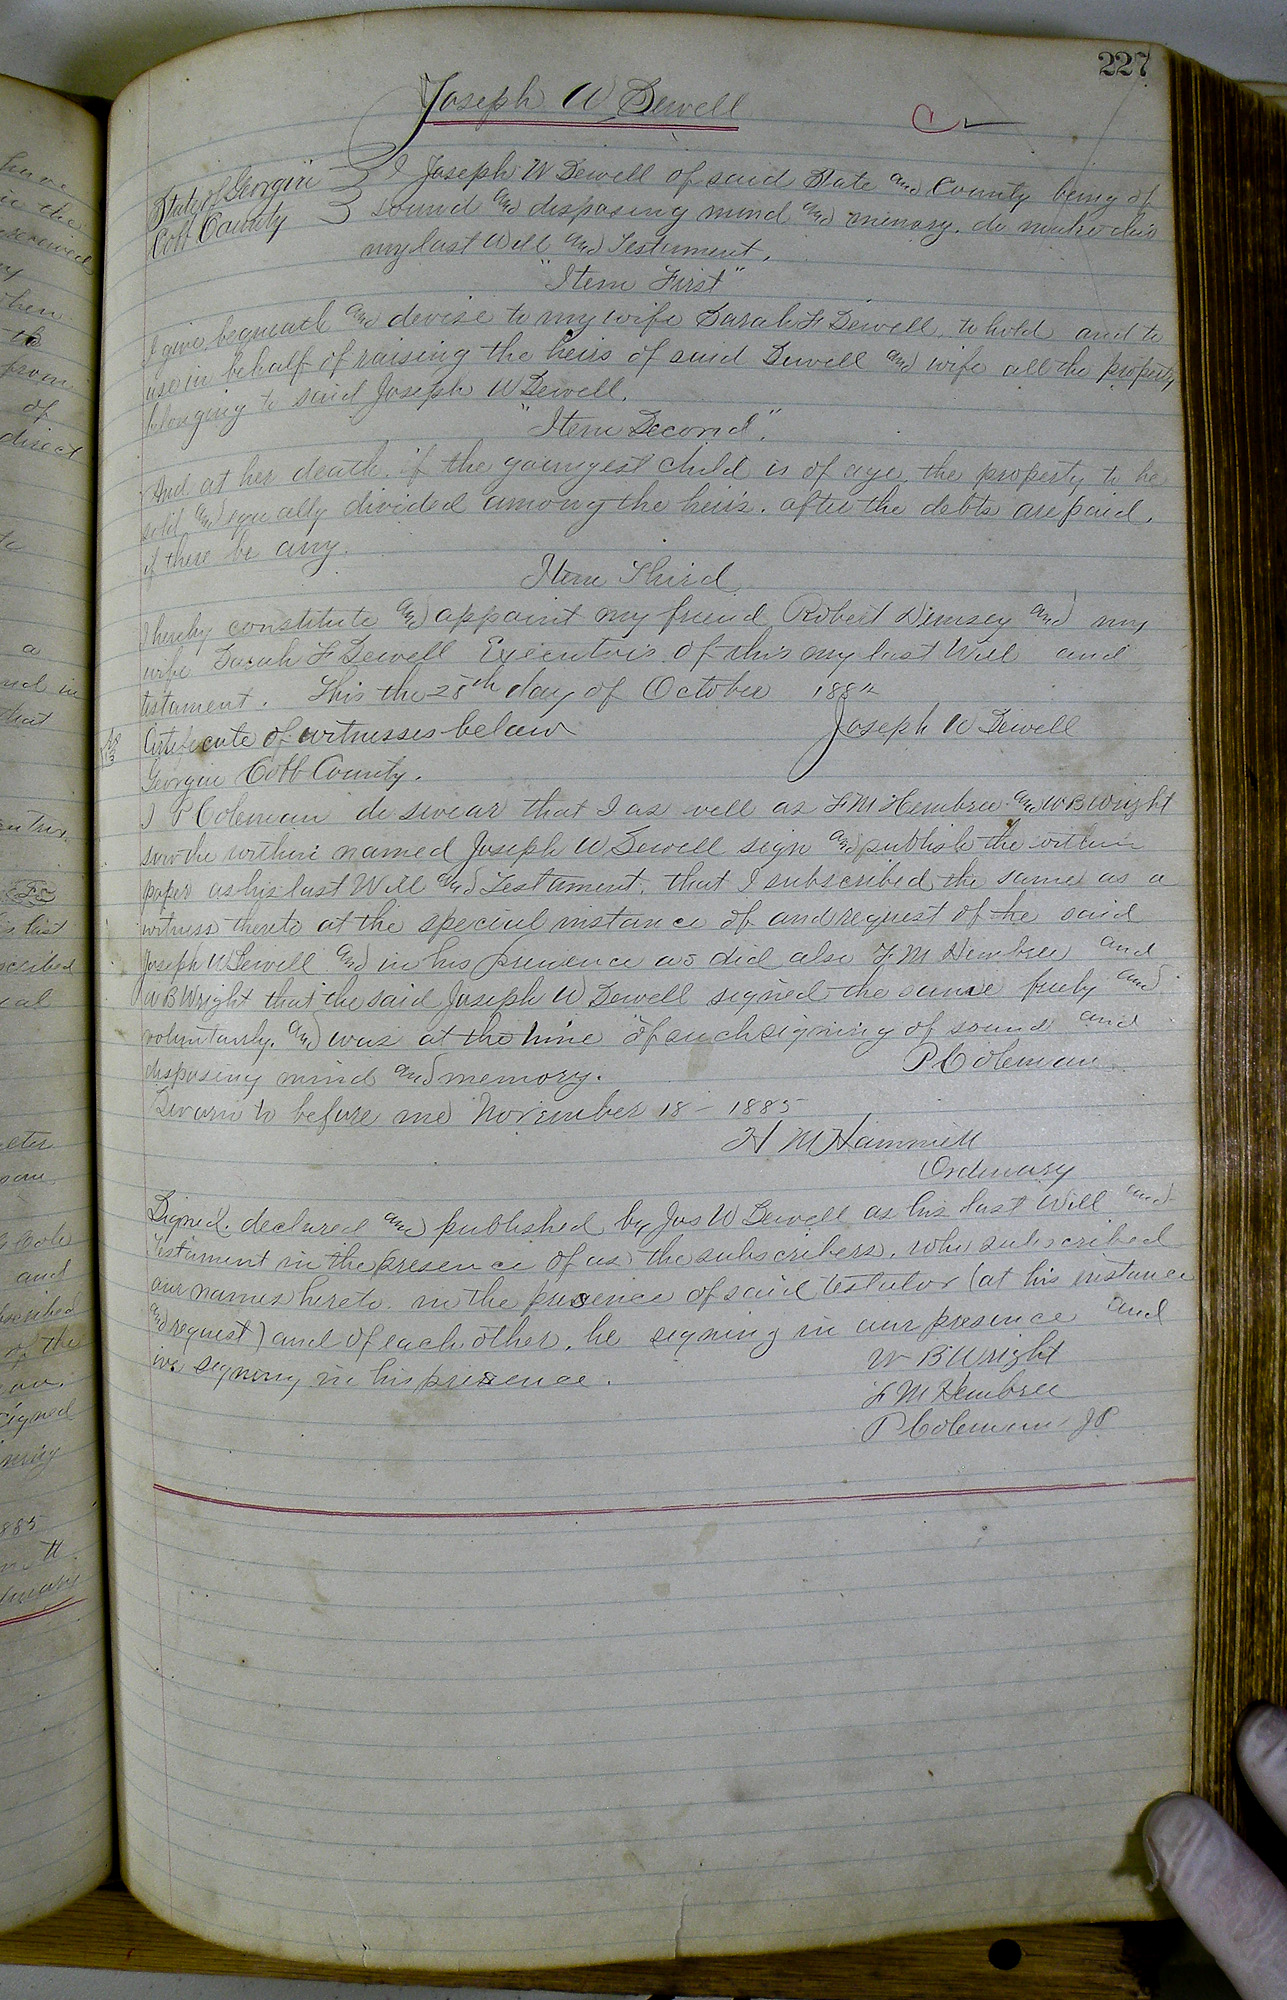 227
Joseph W Sewell
State of Georgia
Cobb County
I Joseph W Sewell of said State and County being of
sound and disposing mind and memory. do make this
my last Will and Testament.
"Item First"
I give, bequeath and devise to my wife Sarah F Sewell, to hold and to
use in behalf of raising the heirs of said Sewell and wife all the property
belonging to said Joseph W Sewell.
"Item Second".
And at her death. if the youngest child is of age, the property to be
sold and equally divided among the heirs. after the debts are paid,
if there be any.
Item Third
I hereby constitute and appoint my friend Robert Dimsey and my
wife Sarah F Sewell Executors of this my last Will and
testament. This the 28th day of October 1884
Joseph W Sewell
Certificate of witnesses below
Georgia Cobb County.
I P Coleman do swear that I as well as F M Hembree and W B Wright
saw the within named Joseph W Sewell sign and publish the within
paper as his last Will and Testament, that I subscribed the same as a
witness thereto at the special instance of and request of the said
Joseph W Sewell and in his presence as did also F M Hembree and
W B Wright that the said Joseph W Sewell signed the same freely and
voluntarily, and was at the time of such signing of sound and
disposing mind and memory.
P Coleman
Sworn to before me November 18 - 1885
H M Hammett
Ordinary
Signed. declared and published by Jos W Sewell as his last Will and
Testament in the presence of us the subscribers, who subscribed
our names hereto in the presence of said testator (at his instance
and request) and of each other, he signing in our presence and
we signing in his presence.
W B Wright
F M Hembree
P Coleman J P